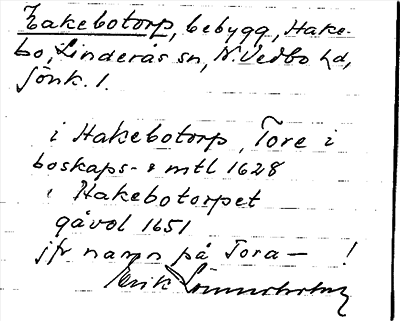 Hakebotorp, bebygg, Hake-
bo, Linderås sn, N. Vedbo hd,
Jönk. l.
i Hakebotorp, Tore i
boskaps- & mtl 1628
i Hakebotorpet
gåvol 1651
jfr namn på Tora — !
Erik